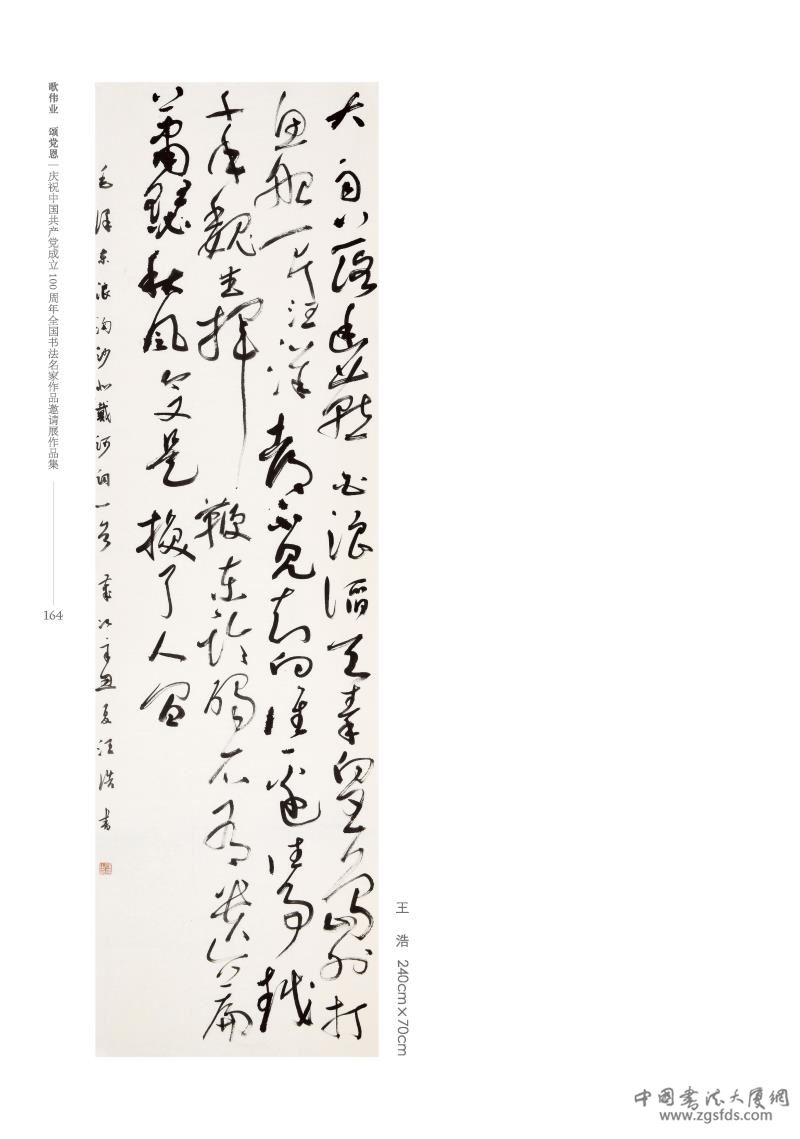 歌伟业 颂党恩 | 庆祝中国共产党成立100周年全国书法名家作品邀请展作品集
164
大雨落幽燕白浪滔天秦皇島外打
魚船一片汪洋都不見知向誰邊往事越
千年魏武揮鞭東臨碣石有遺篇
蕭瑟秋風今又是換了人間
毛澤東浪淘沙北戴河詞一首 歲次辛丑夏汪浩書
王 浩 240cm×70cm
中国书法大厦網
www.zgsfds.com